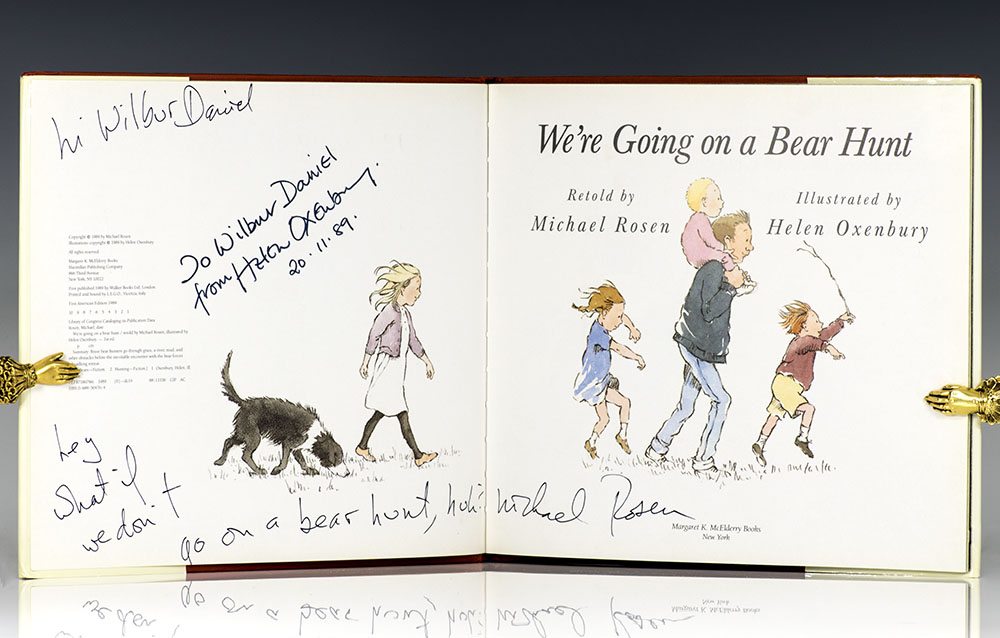 hi Wilbur Daniel
To Wilbur Daniel
from Helen Oxenbury.
20.11.89.
Copyright © 1989 by Michael Rosen
Illustrations copyright © 1989 by Helen Oxenbury
All rights reserved.
Margaret K. McElderry Books
Macmillan Publishing Company
866 Third Avenue
New York, NY 10022
First published 1989 by Walker Books Ltd, London
Printed and bound by L.E.G.O., Vicenza, Italy
First American Edition 1989
10 9 8 7 6 5 4 3 2 1
Library of Congress Cataloging-in-Publication Data
Rosen, Michael, date
We're going on a bear hunt / retold by Michael Rosen, illustrated by
Helen Oxenbury. — 1st ed.
p. cm.
Summary: Brave bear hunters go through grass, a river, mud, and
other obstacles before the inevitable encounter with the bear forces
hey
what if
we don't
go on a bear hunt, huh? Michael Rosen
We're Going on a Bear Hunt
Retold by
Michael Rosen
Illustrated by
Helen Oxenbury
Margaret K. McElderry Books
New York